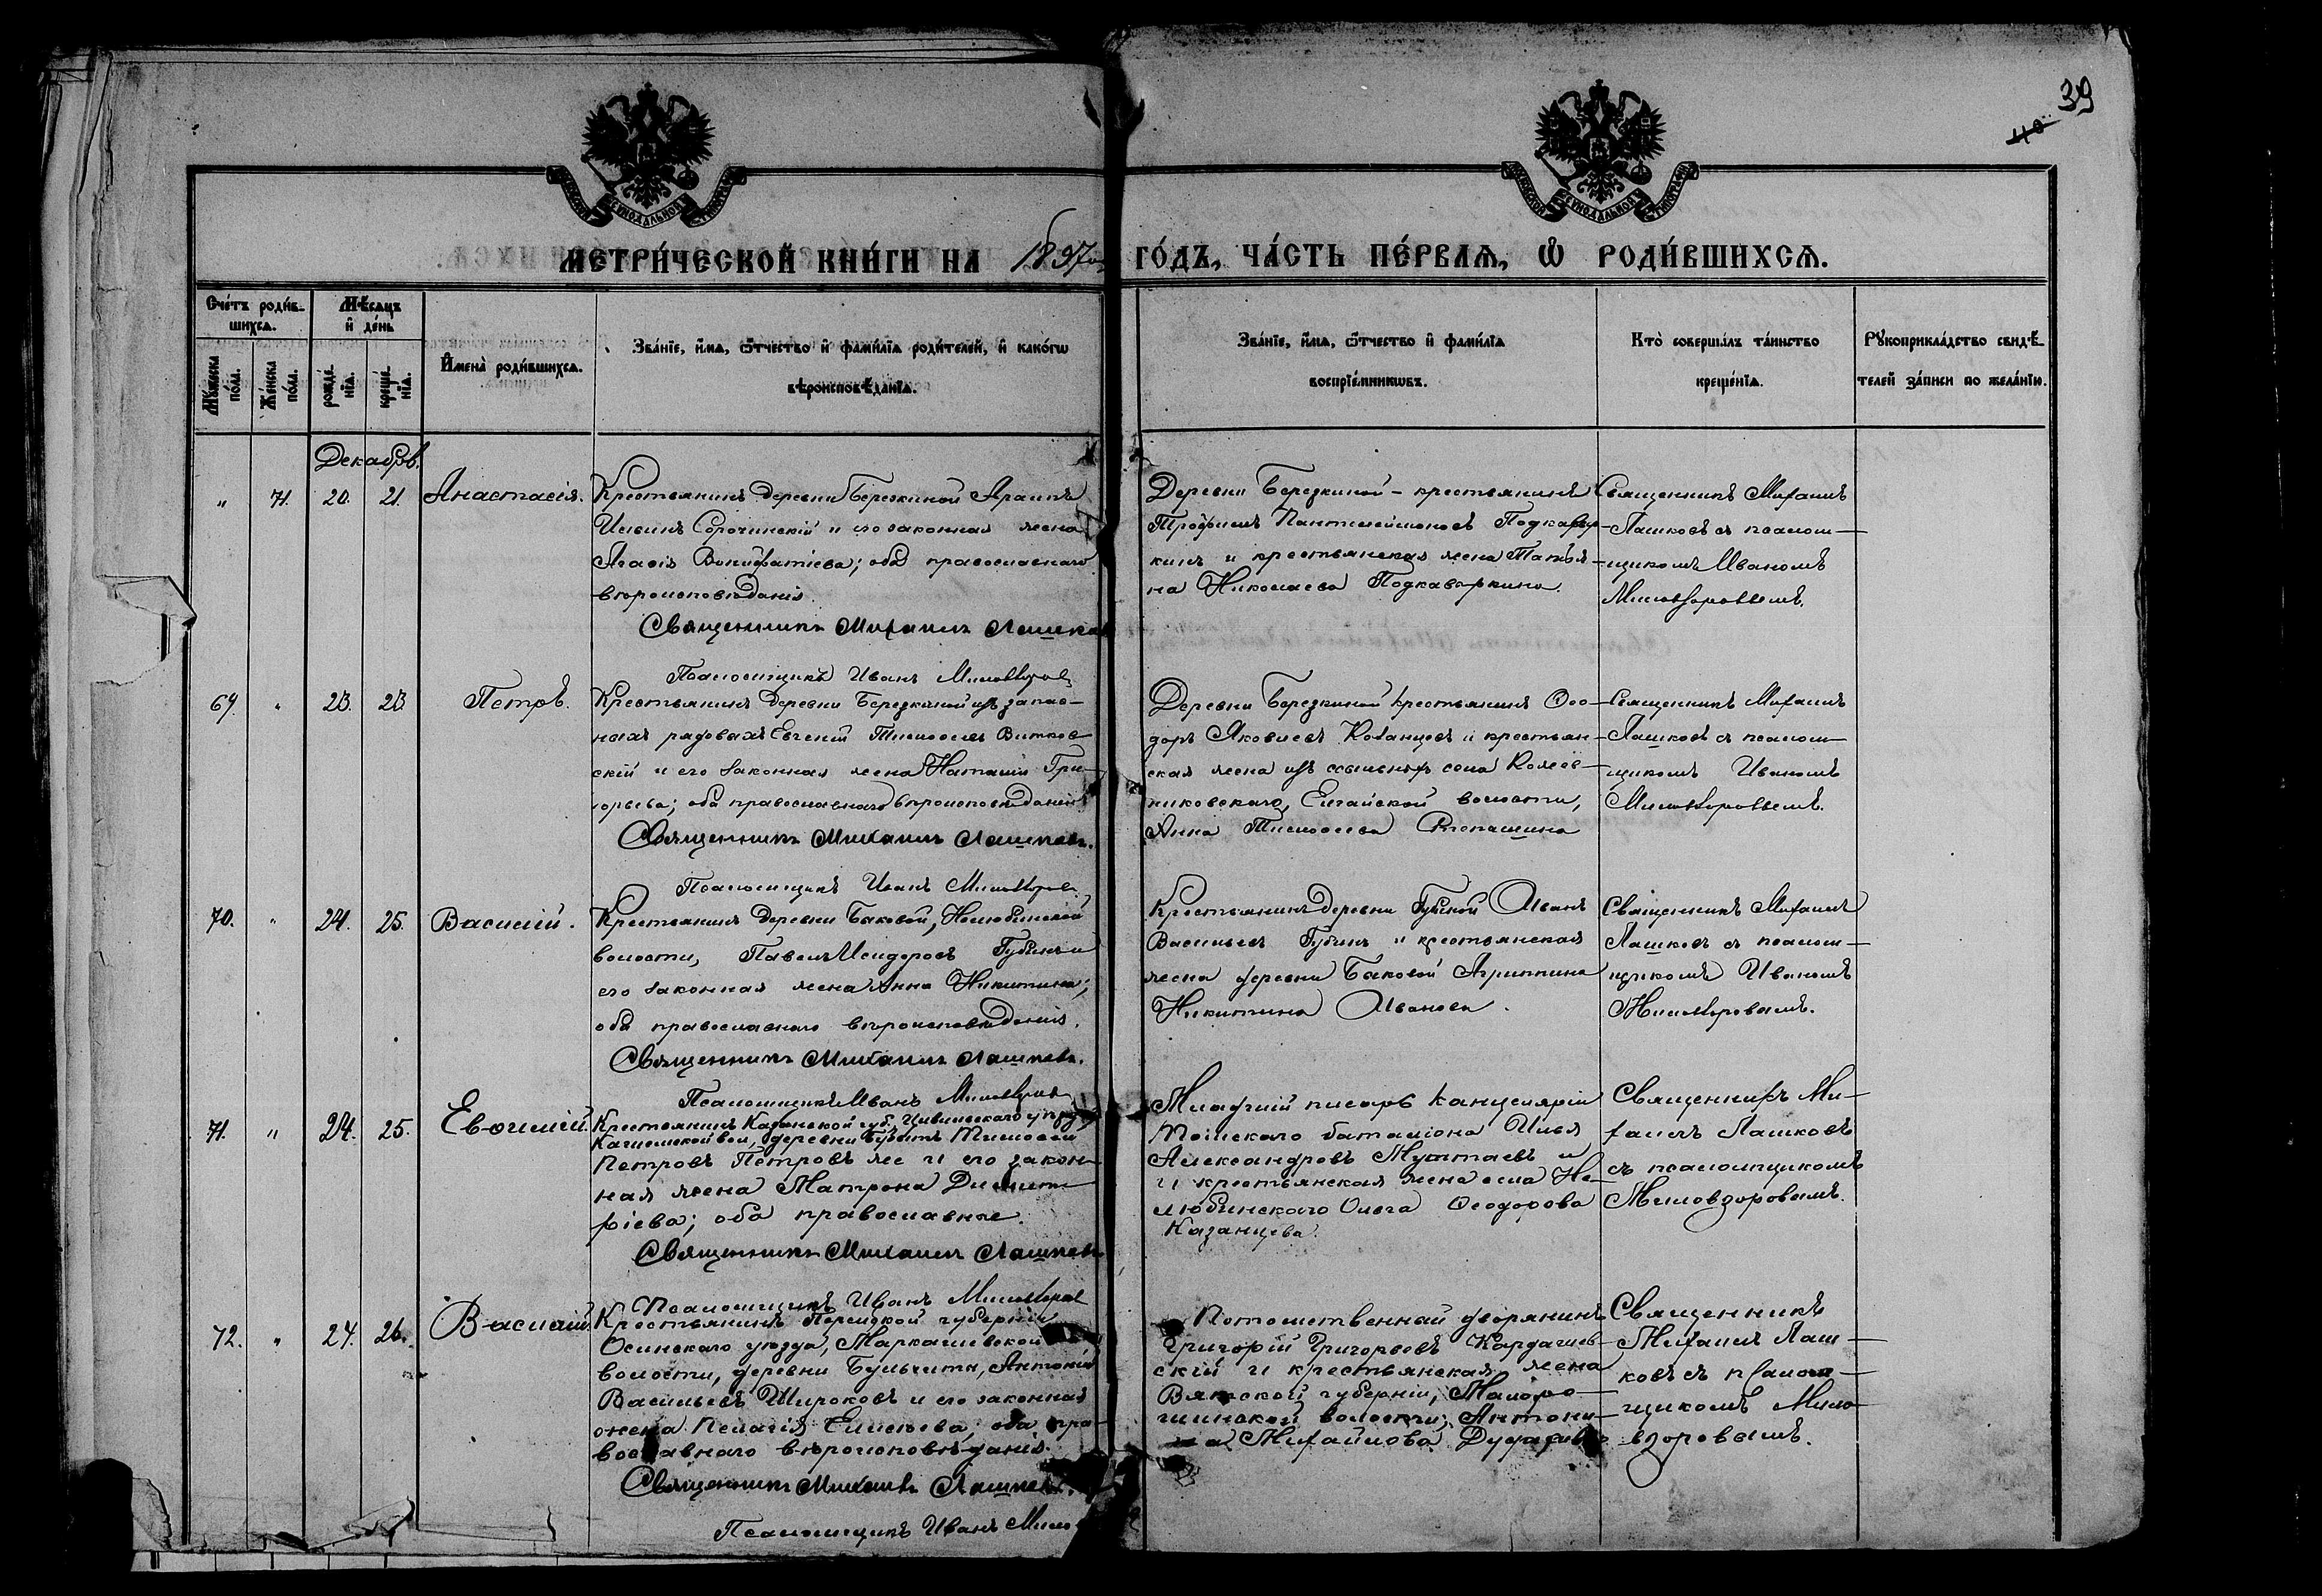 39
40
МЕТРИ́ЧЕСКОЙ КНИ́ГИ НА 1897 ГО́ДЪ, ЧА́СТЬ ПЕ́РВАѦ, Ѿ РОДИ́ВШИХСѦ.
Сче́тъ роди́в-
шихсѧ.
Мꙋ́жеска по́ла.
Же́нска по́ла.
Мѣ́сѧцъ
и҆ де́нь
рожде́нїѧ.
креще́нїѧ.
И҆мена̀ роди́вшихсѧ.
Зва́нїе, и҆́мѧ, ѻ҆́тчество и҆ фами́лїѧ роди́телей, и҆ како́гѡ
вѣроисповѣ́данїѧ.
Зва́нїе, и҆́мѧ, ѻ҆́тчество и҆ фами́лїѧ
воспрїе́мникѡвъ.
Кто̀ соверша́лъ та́инство
креще́нїѧ.
Рꙋкоприкла́дство свидѣ́-
телей за́писи по жела́нїю.
Декабрь.
" 71. 20. 21. Анастасія.
Крестьянинъ деревни Березкиной
Сорочинскій и его законная жена
Вонифатіева; оба православнаго
вѣроисповѣданія.
Священникъ Михаилъ Лашковъ
Псаломщикъ Иванъ Миловзоровъ
Деревни Березкиной – крестьянинъ
Трофимъ Пантелеймоновъ
и крестьянская жена Татья-
на Николаева
Священникъ Михаилъ
Лашковъ съ псалом-
щикомъ Иваномъ
Миловзоровымъ.
69. " 23. 23. Петръ.
Крестьянинъ деревни Березкиной изъ запас-
ныхъ рядовыхъ Евгеній Витков-
скій и его законная жена Наталія Гри-
горьева; оба православнаго вѣроисповѣданія
Священникъ Михаилъ Лашковъ.
Псаломщикъ Иванъ Миловзоровъ
Деревни Березкиной крестьянинъ Ѳео-
доръ Яковлевъ Казанцевъ и крестьян-
ская жена изъ ссыльныхъ села Кожев-
никовскаго, Елгайской волости,
Анна Тимоѳеева Степашина
Священникъ Михаилъ
Лашковъ съ псалом-
щикомъ Иваномъ
Миловзоровымъ.
70. " 24. 25. Василій.
Крестьянинъ деревни Баковой, Нелюбинской
волости, Павелъ Исидоровъ Губинъ и
его законная жена Анна Никитина;
оба православнаго вѣроисповѣданія.
Священникъ Михаилъ Лашковъ.
Псаломщикъ Иванъ Миловзоровъ
Крестьянинъ деревни Губиной Иванъ
Васильевъ Губинъ и крестьянская
жена деревни Баковой Агриппина
Никитина Иванова.
Священникъ Михаилъ
Лашковъ съ псалом-
щикомъ Иваномъ
Миловзоровымъ.
71. " 24. 25. Евѳимій.
Крестьянинъ Казанской губ., Цивильскаго уѣзда
вол., деревни Тимоѳей
Петровъ Петровъ же и его закон-
ная жена Матрона Димит-
ріева; оба православные.
Священникъ Михаилъ Лашковъ
Псаломщикъ Иванъ Миловзоровъ
Младшій писарь канцеляріи
Томскаго баталіона Илья
Александровъ и
и крестьянская жена села Не-
любинскаго Ольга Ѳеодорова
Казанцева.
Священникъ Ми-
хаилъ Лашковъ
съ псаломщикомъ
Миловзоровымъ.
72. " 24. 26. Василій
Крестьянинъ Пермской губерніи
Осинскаго уѣзда,
волости, деревни Антоній
Васильевъ Широковъ и его законная
жена Пелагія Елисѣева; оба пра-
вославнаго вѣроисповѣданія.
Священникъ Михаилъ Лашковъ.
Псаломщикъ Иванъ Мило
Потомственный дворянинъ
Григорій Григорьевъ
скій и крестьянская жена
Вятской губерніи,
волости, Антони-
на Михайлова
Священникъ
Михаилъ Лаш-
ковъ съ псалом-
щикомъ Мило-
взоровымъ.